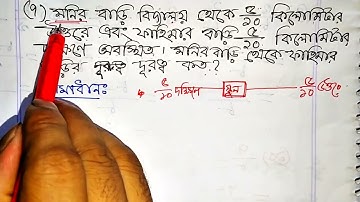 (৭) মনির বাড়ি বিদ্যালয় থেকে ৫/১০ কিলোমিটার
উত্তরে এবং ফাহিমার বাড়ি ৫/১০ কিলোমিটার
অবস্থিত। মনির বাড়ি থেকে ফাহিমার
দূরত্ব কত?
৫/১০ দক্ষিণে স্কুল ৫/১০ উত্তরে